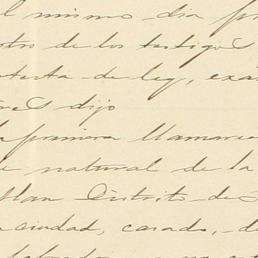 l mismo dia
otro de los testigos
testa de ley, exa
res dijo
la primera llamarse
e natural de la
tlan Distrito de S
a ciudad, casado, de